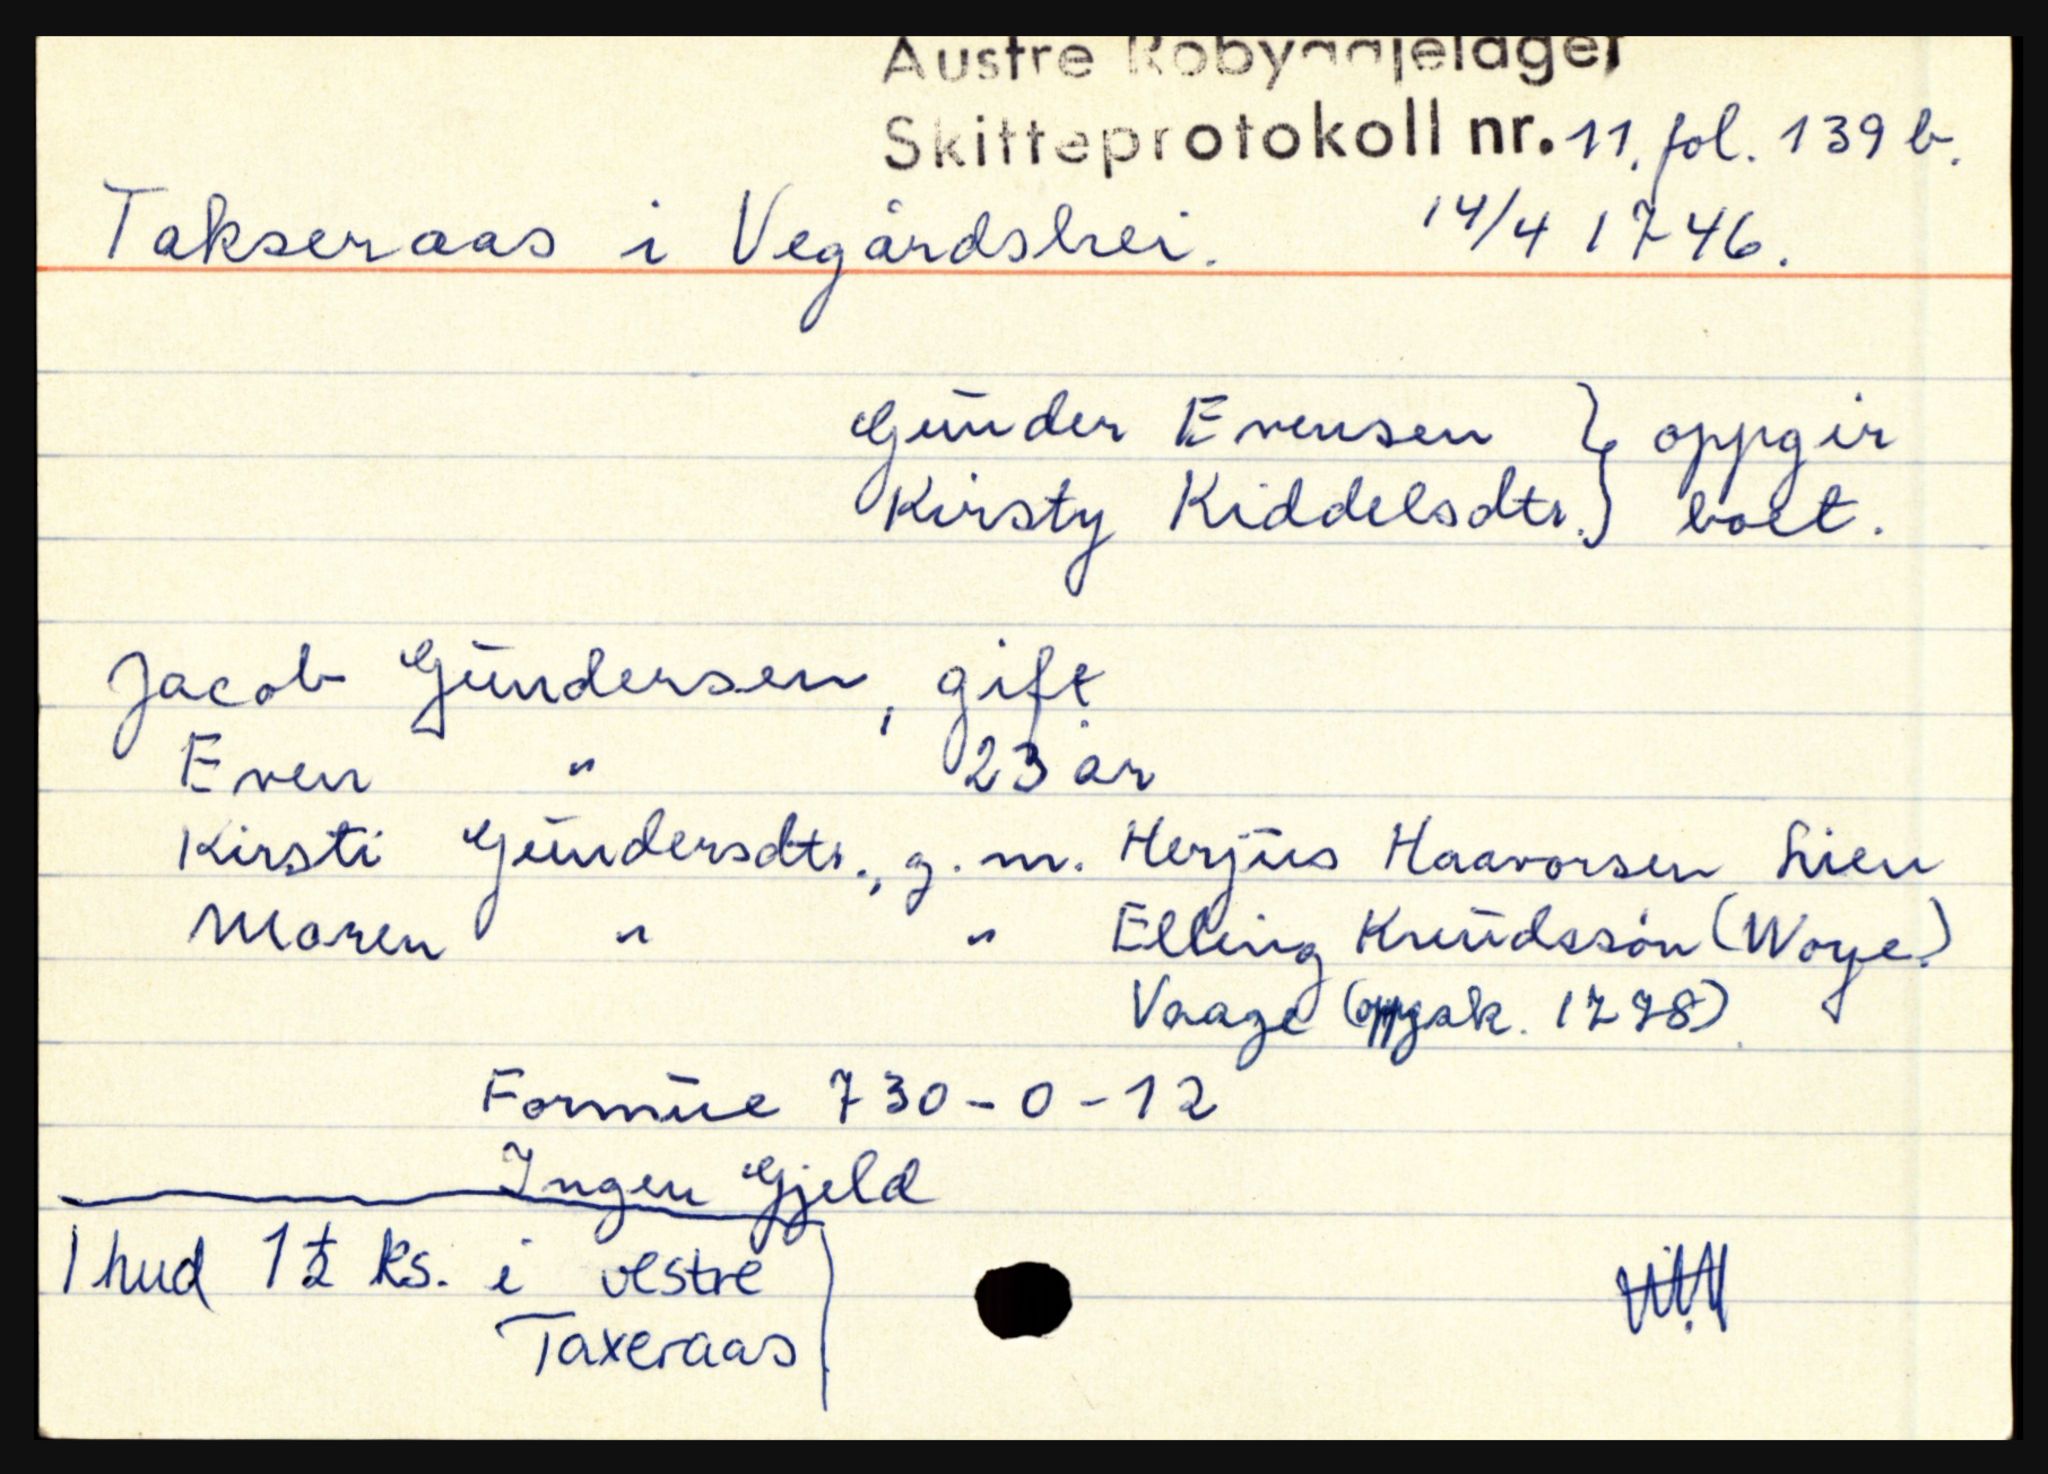 Austre Robyggjelaget
Skifteprotokoll nr. 11. fol. 139 b.
Takseraas i Vegårdshei. 14/4 1746.
Gunder Evensen } oppgir
Kirsty Kiddelsdtr. } boet.
Jacob Gundersen, gift
Even " 23 år
Kirsti Gundersdtr., g. m. Herjus Haavorsen Lien
Maren " " Elling Knudssøn (Woye.)
Vaage (oppgsk. 1778)
Formue 730-0-12
Ingen Gjeld
1 hud 1½ ks. i vestre
Taxeraas